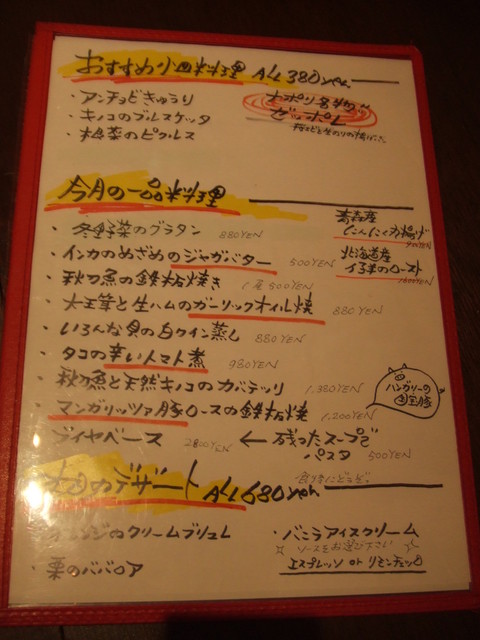 おすすめ小皿料理 ALL 380yen
・アンチョビきゅうり
・キノコのブルスケッタ
・根菜のピクルス
ナポリ名物
ゼッポレ
今月の一品料理
・冬野菜のグラタン 880YEN
・インカのめざめのジャガバター 500YEN
・秋刀魚の鉄板焼き 1尾 500YEN
・大王茸と生ハムのガーリックオイル焼 880YEN
・いろんな貝の白ワイン蒸し 880YEN
・タコの辛いトマト煮 980YEN
・秋刀魚と天然キノコのカバテッリ 1,380YEN
・マンガリッツァ豚ロースの鉄板焼 1,200YEN
・ブイヤベース 2800YEN ← 残ったスープで
パスタ 500YEN
青森産
にんにくの揚げ
北海道産
仔羊のロースト
ハンガリーの
国宝豚
のデザート ALL 680yen
オレンジのクリームブリュレ
・栗のババロア
・バニラアイスクリーム
☆ソースをお選び下さい☆
エスプレッソ or リモンチェッロ